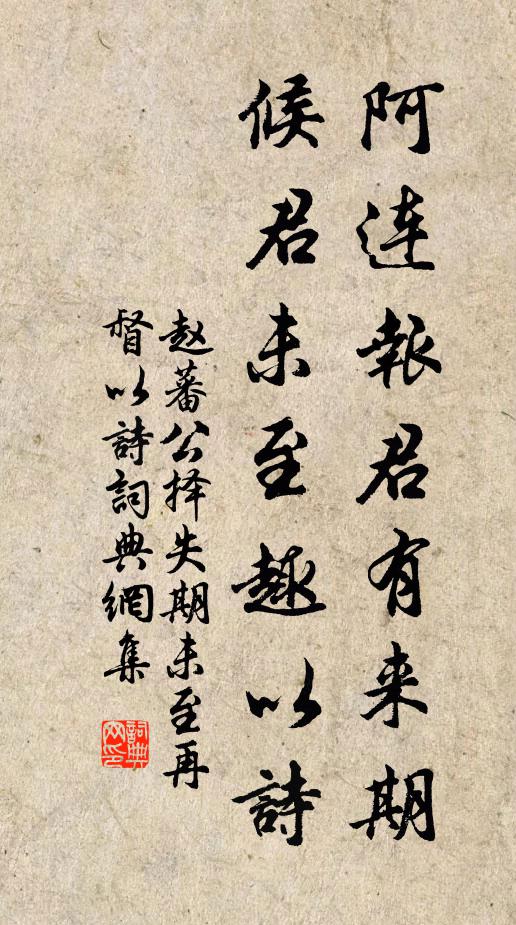 阿連報君有来期
候君未至趣以詩
赵蕃公择失期未至再
督以詩詞典網集
詞典
网印